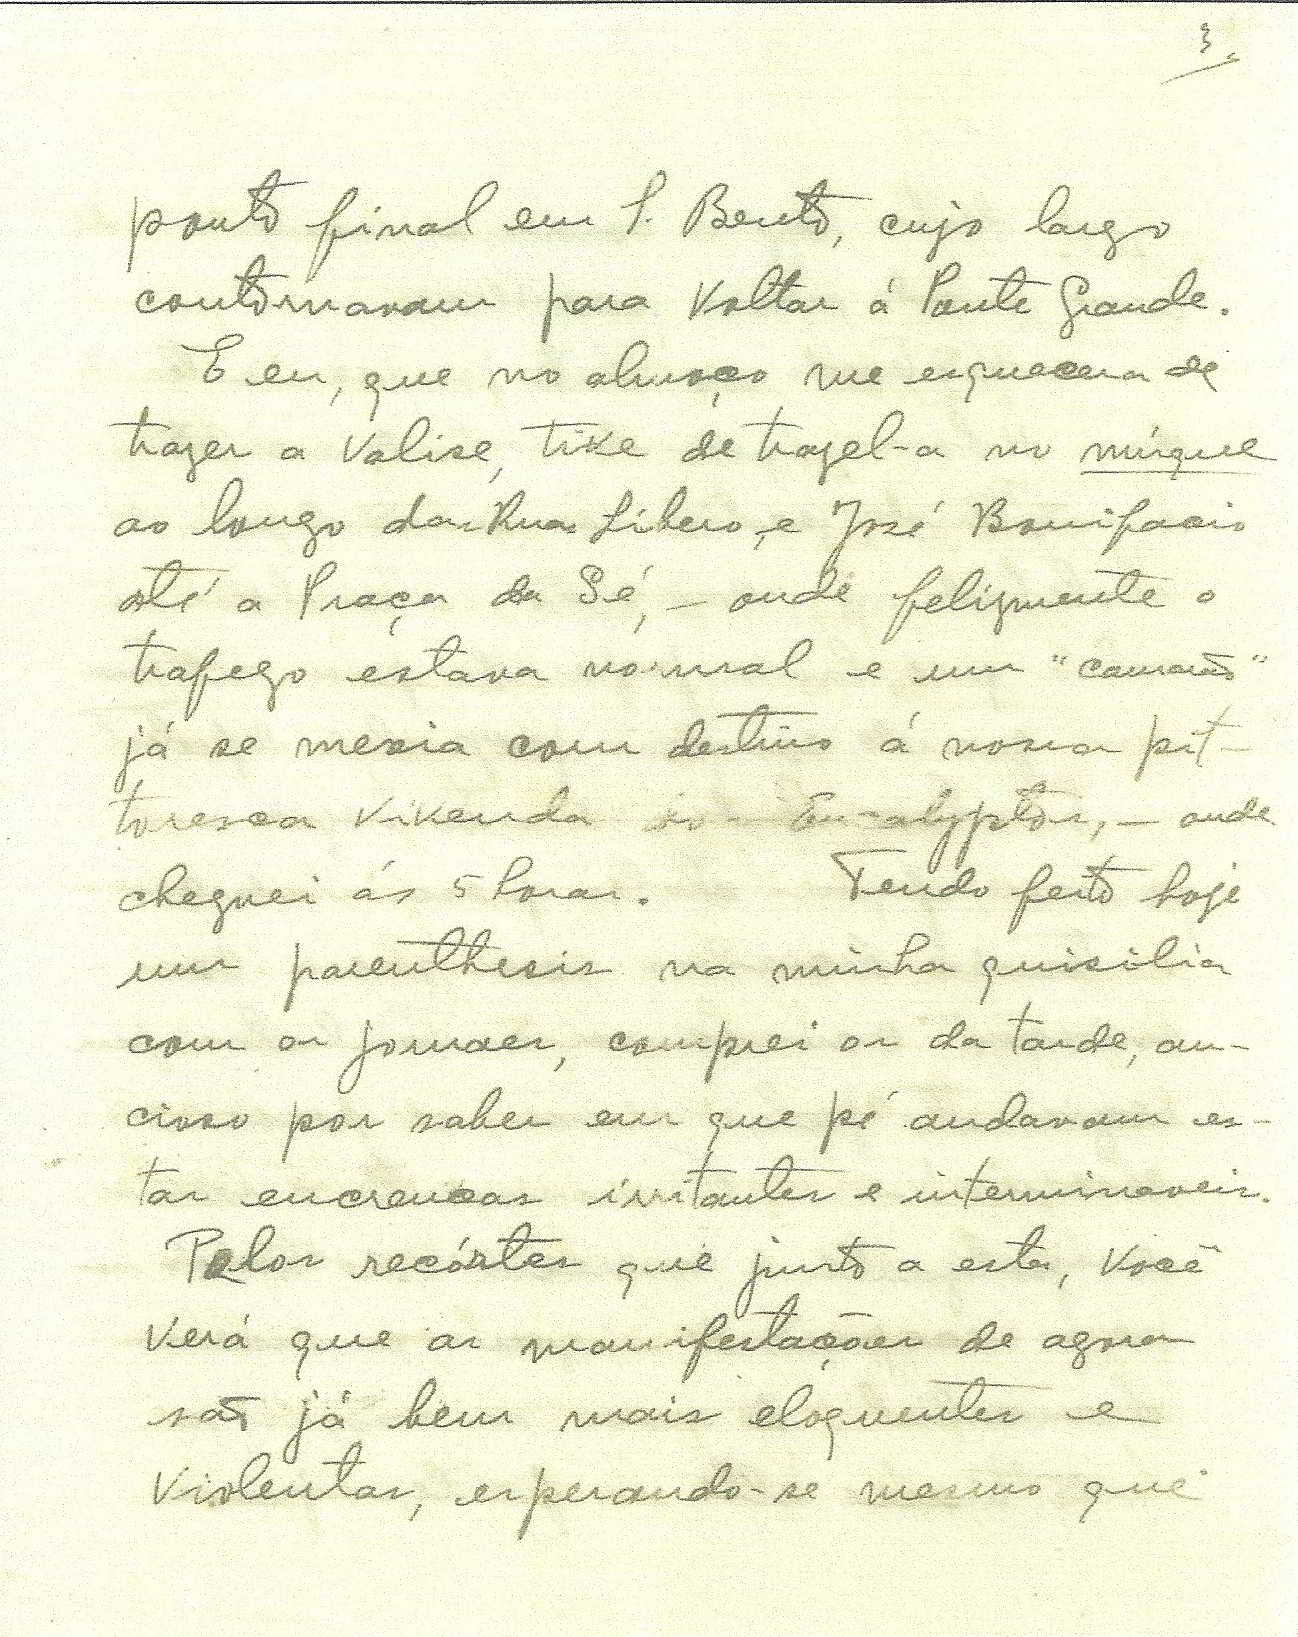 3.
ponto final em S. Bento, cujo largo
contornavam para voltar á Ponte Grande.
E eu, que no almoço me esquecera de
trazer a valise, tive de trazel-a no muque
ao longo das Ruas Líbero, e José Bonifacio
até a Praça da Sé, – onde felizmente o
trafego estava normal e um "camarão"
já se mexia com destino á nossa pit-
toresca vivenda dos Eucalyptos, – onde
cheguei ás 5 horas. Tendo feito hoje
um parenthesis na minha quisilia
com os jornaes, comprei os da tarde, an-
cioso por saber em que pé andavam es-
tas encrencas irritantes e interminaveis.
Pelos recórtes que junto a esta, você
verá que as manifestações de agora
saõ já bem mais eloquentes e
violentas, esperando-se mesmo que